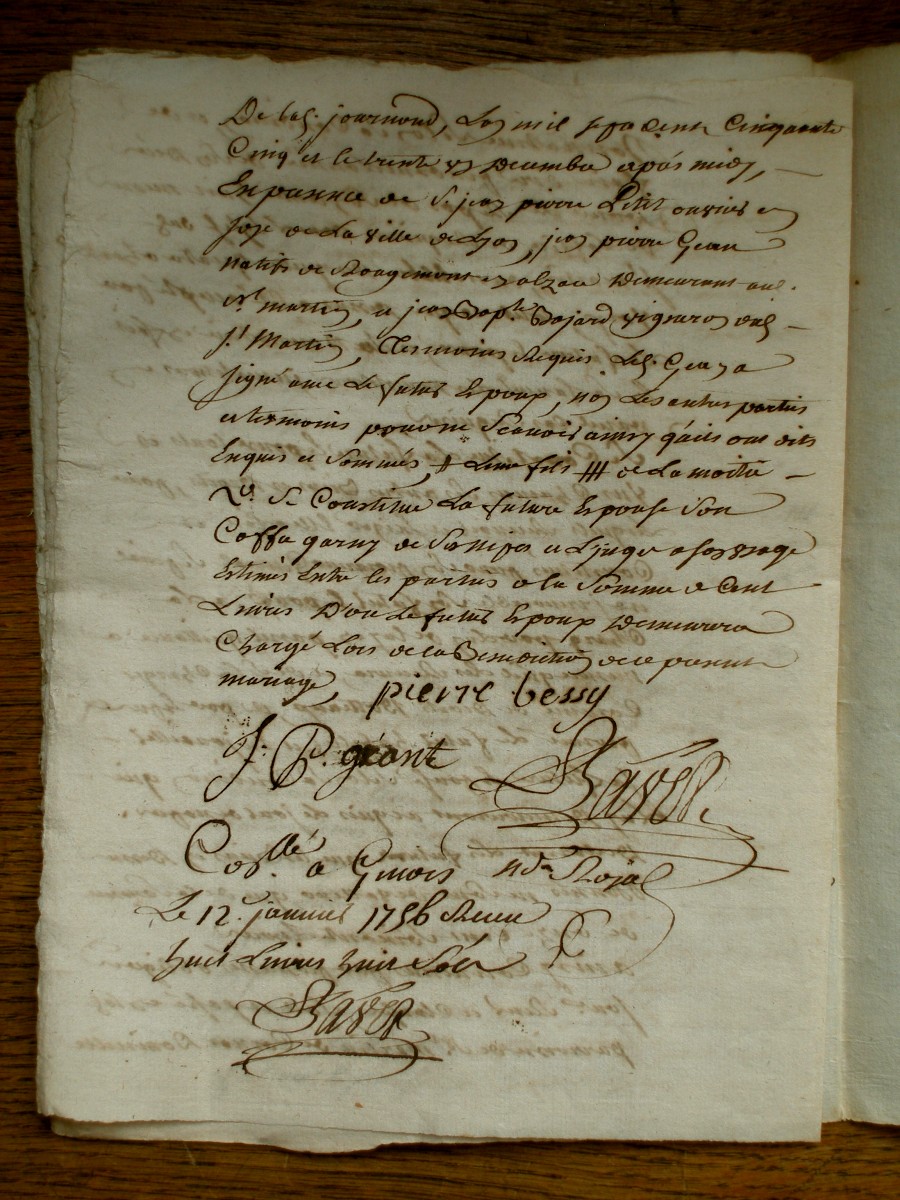 De lad. journond, Lan mil sept cent Cinquante
Cinq et le trente un Decembre apres midy,
En presence de Sr. jean pierre Petit ouvrier en
soye de La ville de Lyon, jean pierre Geant
natif de Rougemont en alzace Demeurant aud.
St. martin, et jean Bapte. Bojard vigneron dud.
St. Martin, Tesmoins Requis Led. Geant a
signé avec Le futur Epoux, non Les autres parties
et tesmoins pour ne Scavoir ainsy qu'ils ont dits
Enquis et Sommés, # Leur fils ## de La moitié
Se Constitue La future Epouse Son
Coffre garny de Ses nipes et Linge a son usage
Estimés Entre les parties a la Somme de Cent
Livres Dont Le futur Epoux Demeurera
Chargé Lors de la Benediction de ce present
mariage,
pierre bessy
J. P. géant
Conllé a Givors
nore Royal
Le 12e janvier 1756 Receu
huit Livres huit Sols